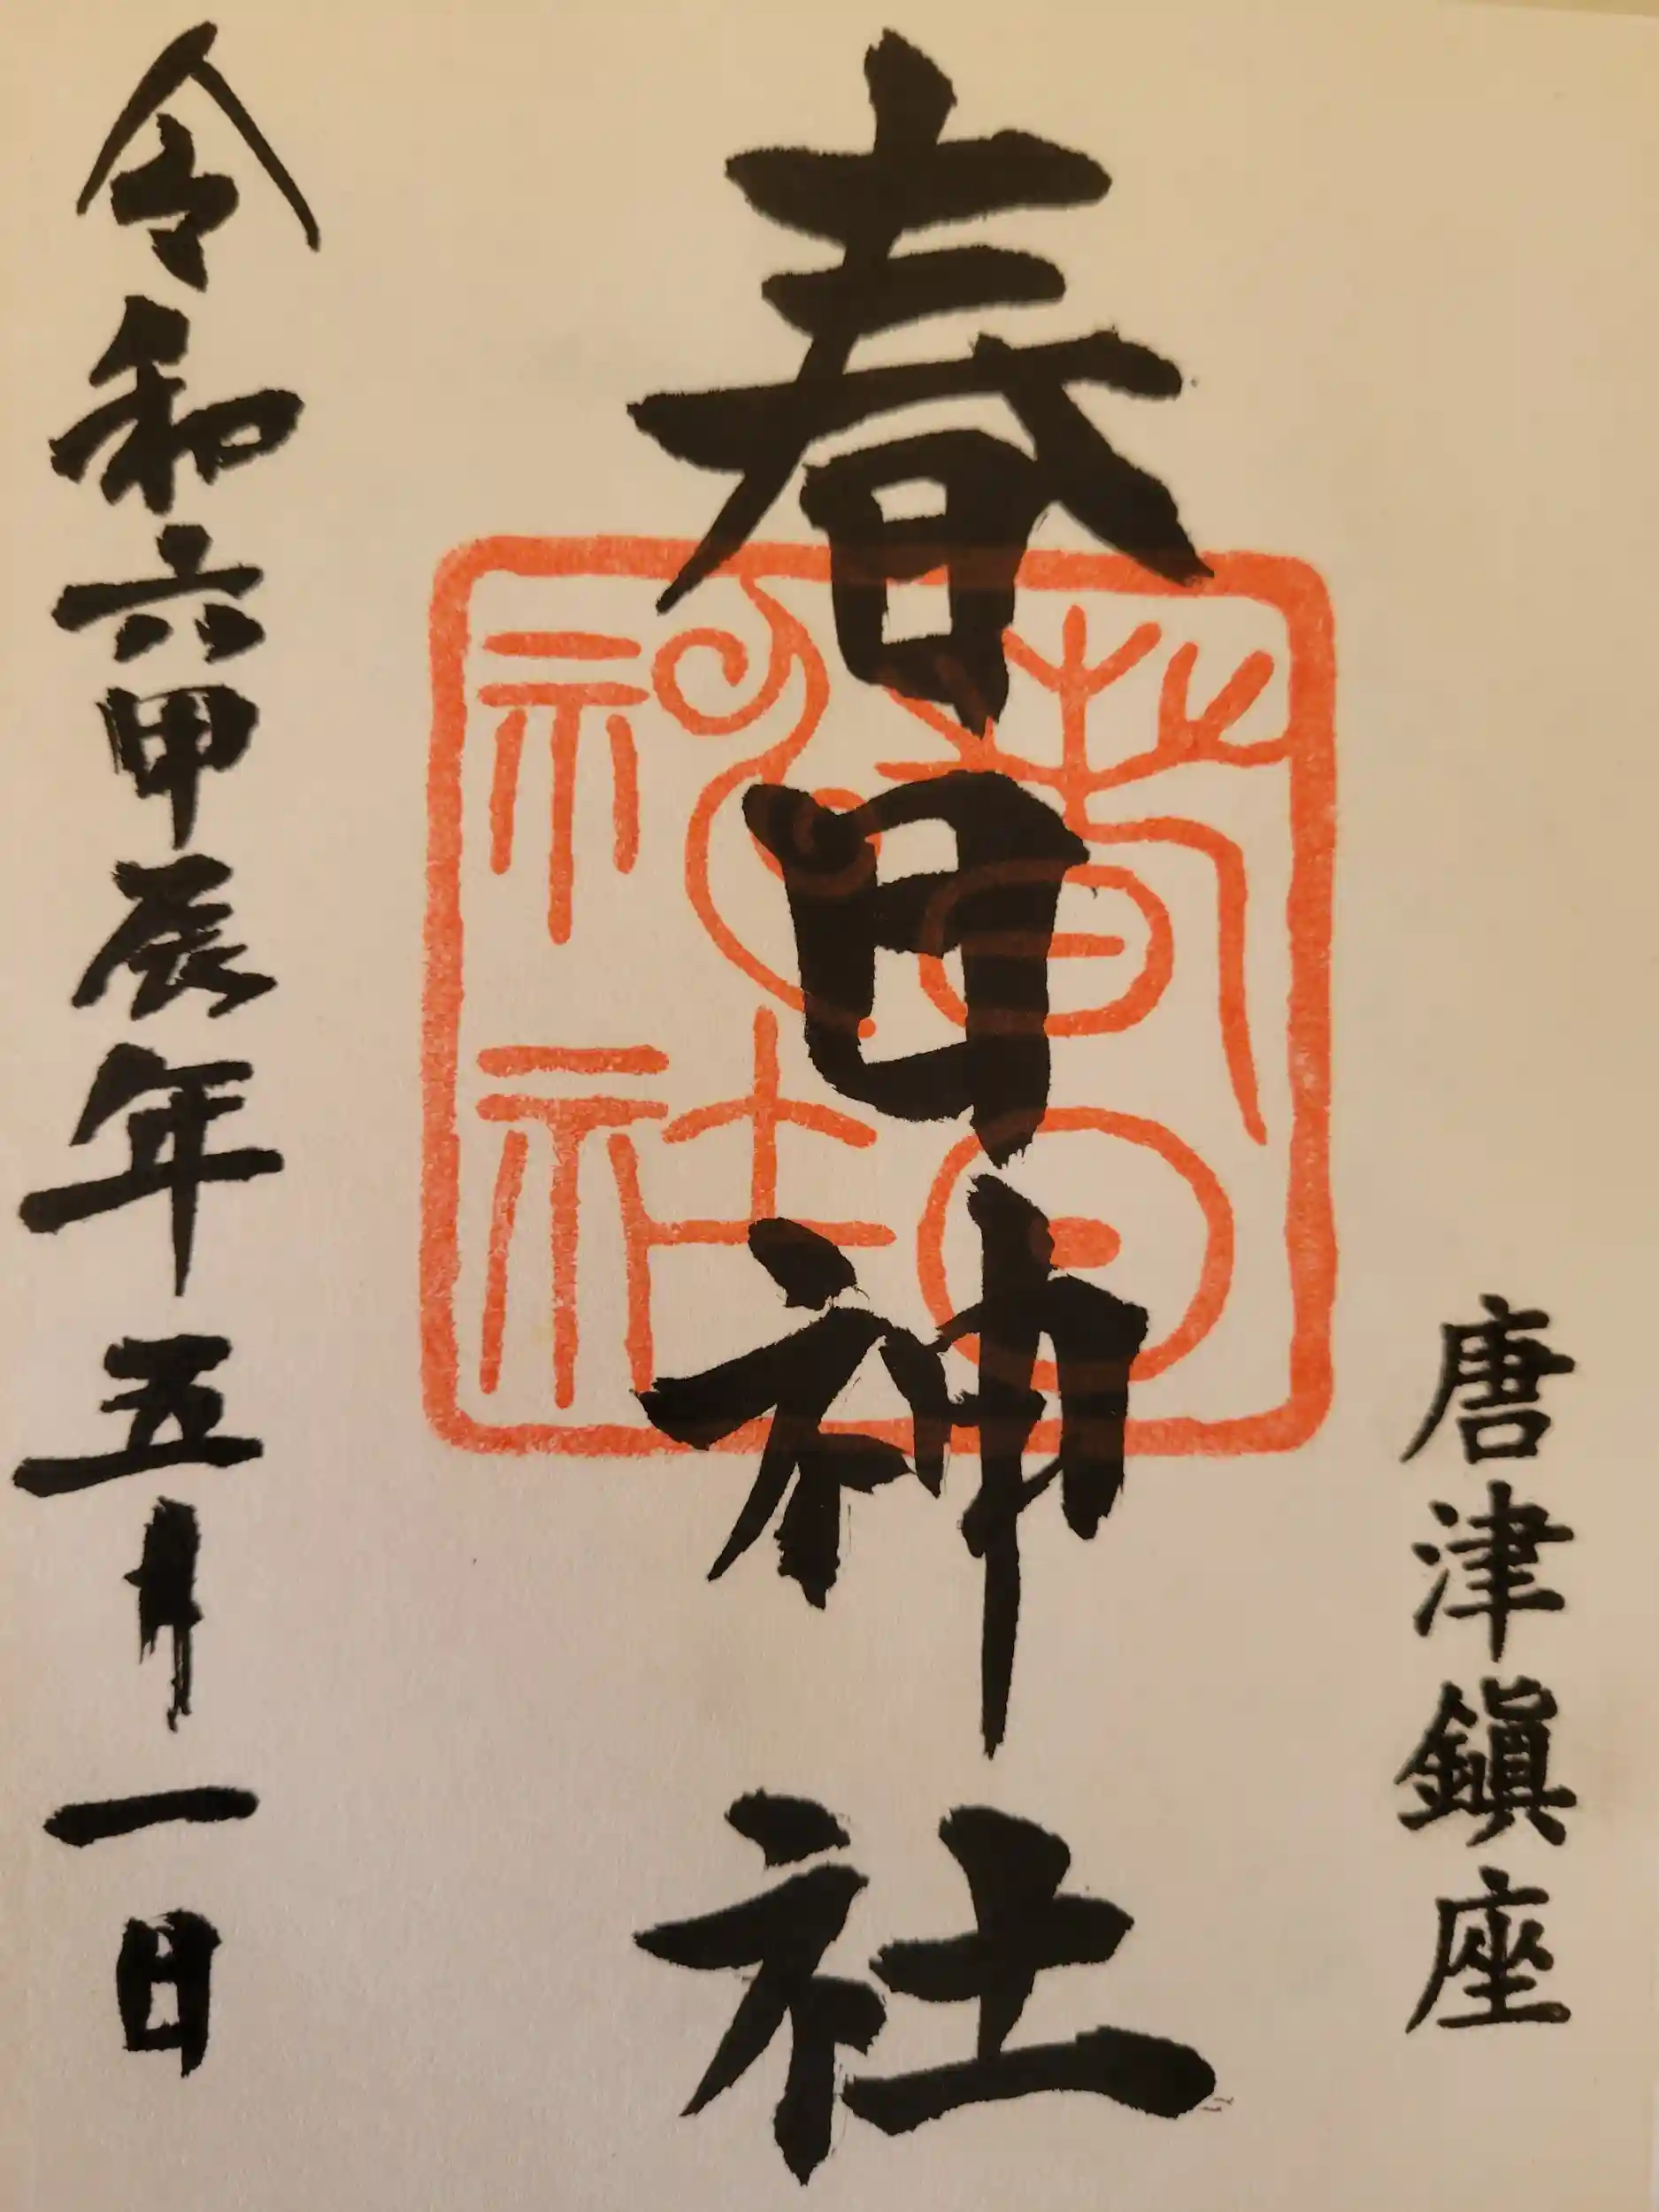 唐津鎭座
春日神社
春日神社
令和六甲辰年五月一日